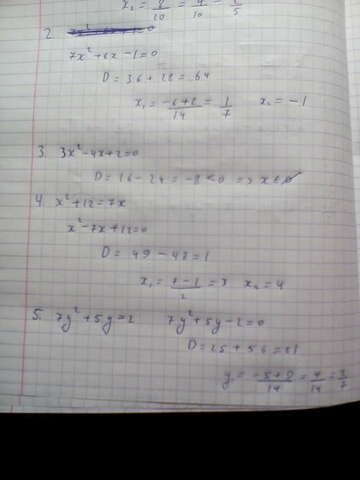 x₂ = 8/20 = 4/10 = 2/5
2.
7x² + 6x - 1 = 0
D = 36 + 28 = 64
x₁ = (-6+8)/14 = 1/7 x₂ = -1
3. 3x² - 4x + 2 = 0
D = 16 - 24 = -8 < 0 => x ∈ ∅
4. x² + 12 = 7x
x² - 7x + 12 = 0
D = 49 - 48 = 1
x₁ = (7-1)/2 = 3 x₂ = 4
5. 7y² + 5y = 2 7y² + 5y - 2 = 0
D = 25 + 56 = 81
y₁ = (-5+9)/14 = 4/14 = 2/7